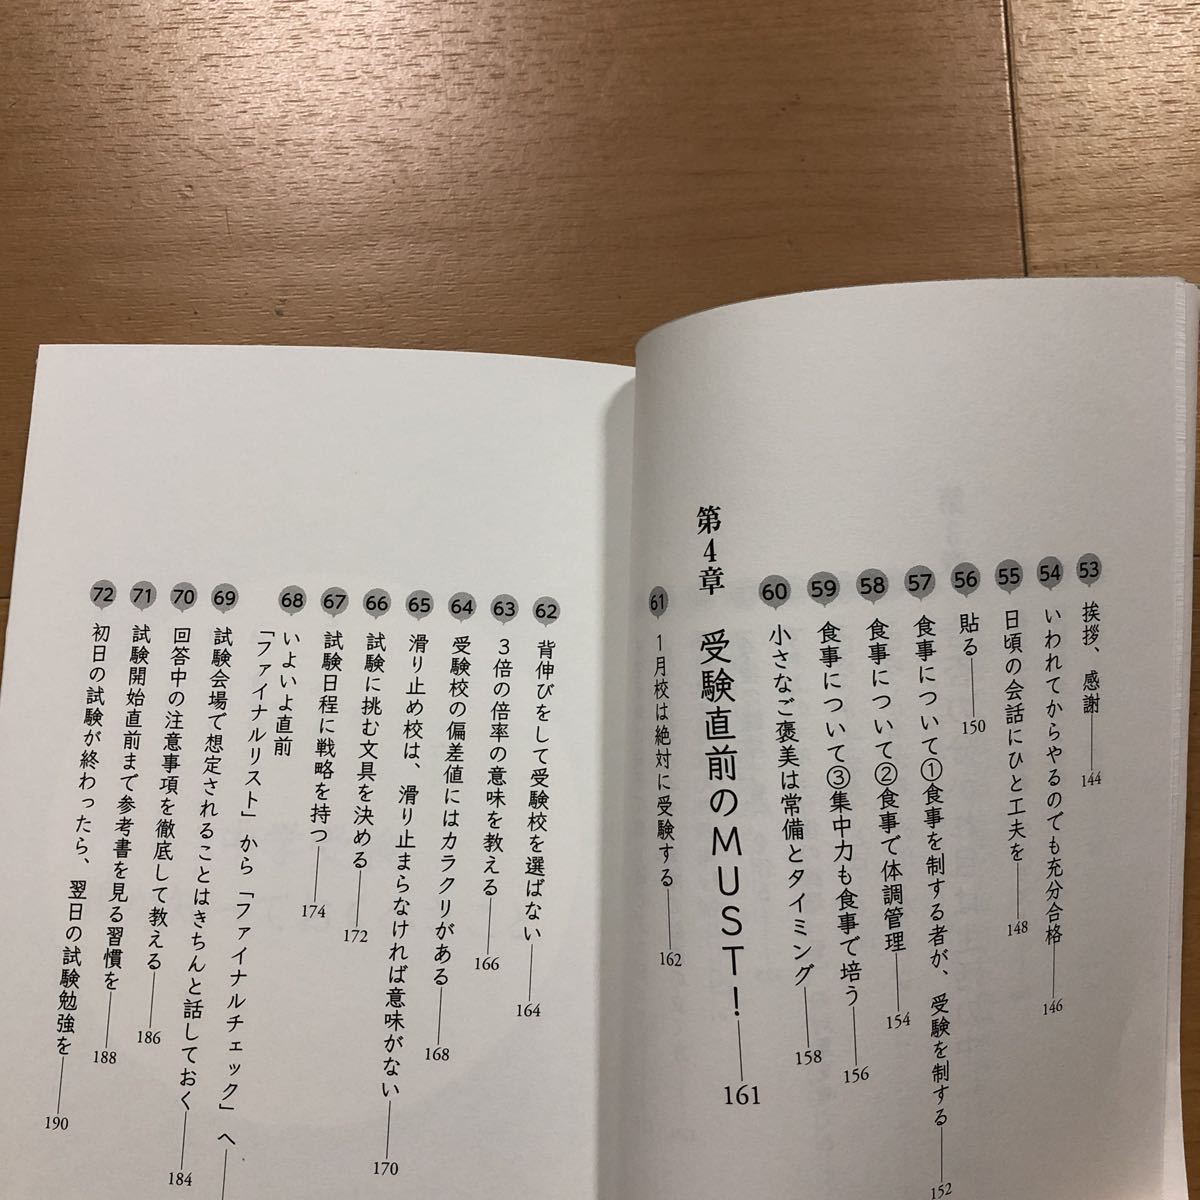 53 挨拶、感謝 144
54 いわれてからやるのでも充分合格 146
55 日頃の会話にひと工夫を 148
56 貼る 150
57 食事について①食事を制する者が、受験を制する 152
58 食事について②食事で体調管理 154
59 食事について③集中力も食事で培う 156
60 小さなご褒美は常備とタイミング 158
第4章 受験直前のMUST! 161
61 1月校は絶対に受験する 162
62 背伸びをして受験校を選ばない 164
63 3倍の倍率の意味を教える 166
64 受験校の偏差値にはカラクリがある 168
65 滑り止め校は、滑り止まらなければ意味がない 170
66 試験に挑む文具を決める 172
67 試験日程に戦略を持つ 174
68 いよいよ直前
「ファイナルリスト」から「ファイナルチェック」へ
69 試験会場で想定されることはきちんと話しておく 184
70 回答中の注意事項を徹底して教える 186
71 試験開始直前まで参考書を見る習慣を 188
72 初日の試験が終わったら、翌日の試験勉強を 190